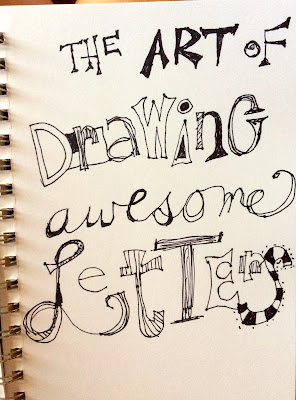 THE ART OF
DrawinG
awesome
LetTers